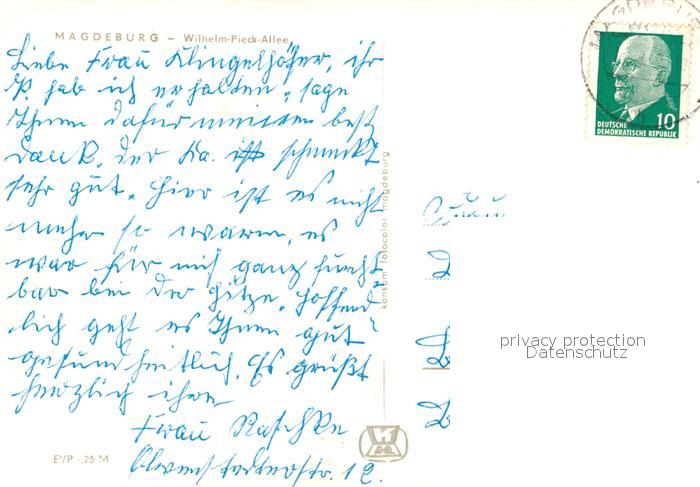 MAGDEBURG – Wilhelm-Pieck-Allee
Liebe Frau Klingelhöfer, ihr
P. hab ich erhalten, sage
Ihnen dafür meinen best
Dank, der Ka. ist schmeckt
sehr gut. Hier ist es nicht
mehr so warm, es
war für mich ganz furcht
bar bei der Hitze. Hoffend
lich geht es Ihnen gut
gesundheitlich. Es grüßt
herzlich ihre
Frau Raschke
Alvenslebenstr. 12.
EVP -,25 M
konsum fotocolor magdeburg
DEUTSCHE
DEMOKRATISCHE REPUBLIK
10
Frau
privacy protection
Datenschutz